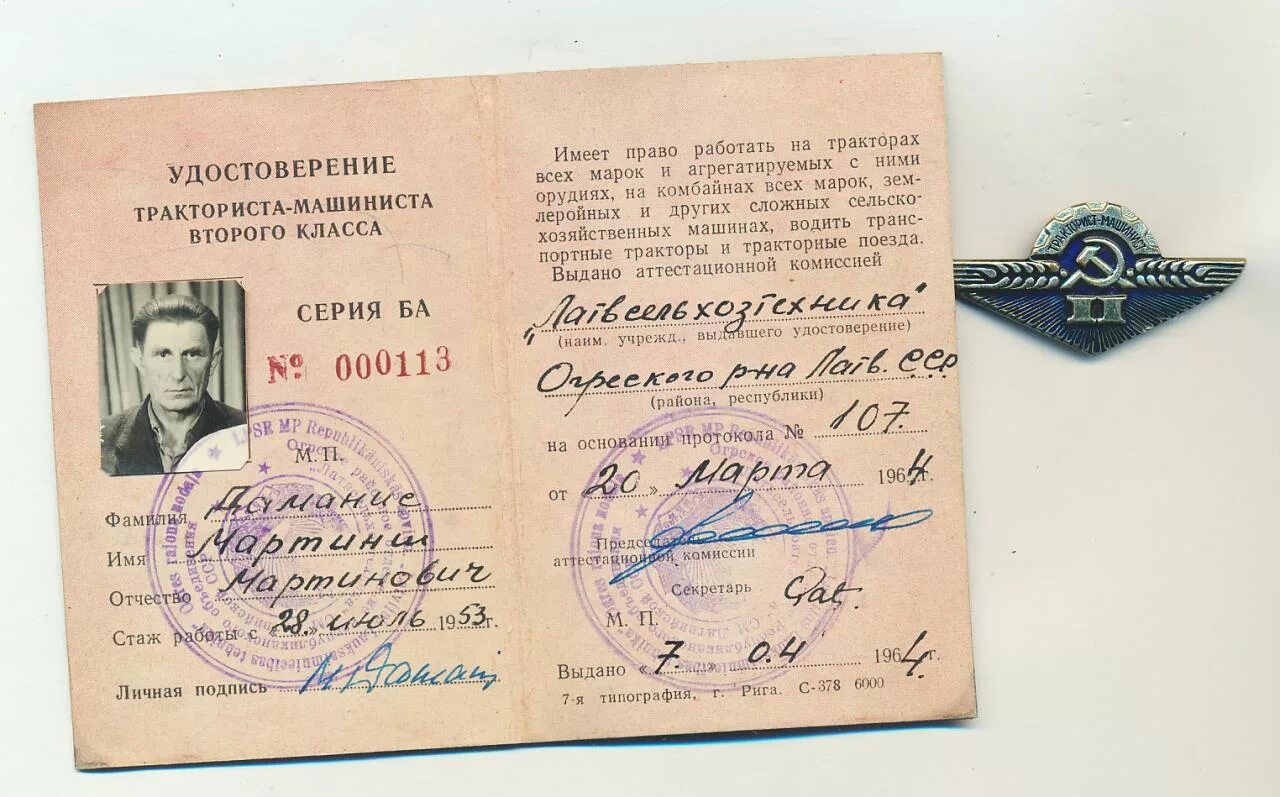 УДОСТОВЕРЕНИЕ
ТРАКТОРИСТА-МАШИНИСТА
ВТОРОГО КЛАССА
СЕРИЯ БА
№ 000113
М. П.
Фамилия Даманис
Имя Мартинш
Отчество Мартинович
Стаж работы с „28.“ июль 1953г.
Личная подпись
Имеет право работать на тракторах
всех марок и агрегатируемых с ними
орудиях, на комбайнах всех марок, зем-
леройных и других сложных сельско-
хозяйственных машинах, водить транс-
портные тракторы и тракторные поезда.
Выдано аттестационной комиссией
„Латвсельхозтехника“
(наим. учрежд., выдавшего удостоверение)
Огреского р-на Латв. ССР
(района, республики)
на основании протокола № 107.
от „20“ Марта 1964г.
Председатель
аттестационной комиссии
Секретарь
М. П.
Выдано „7.“ 04 1964.г.
7-я типография, г. Рига. С-378 6000
LPSR MP Republikāniskās
Ogres rajona nodaļa
ТРАКТОРИСТ-МАШИНИСТ
II